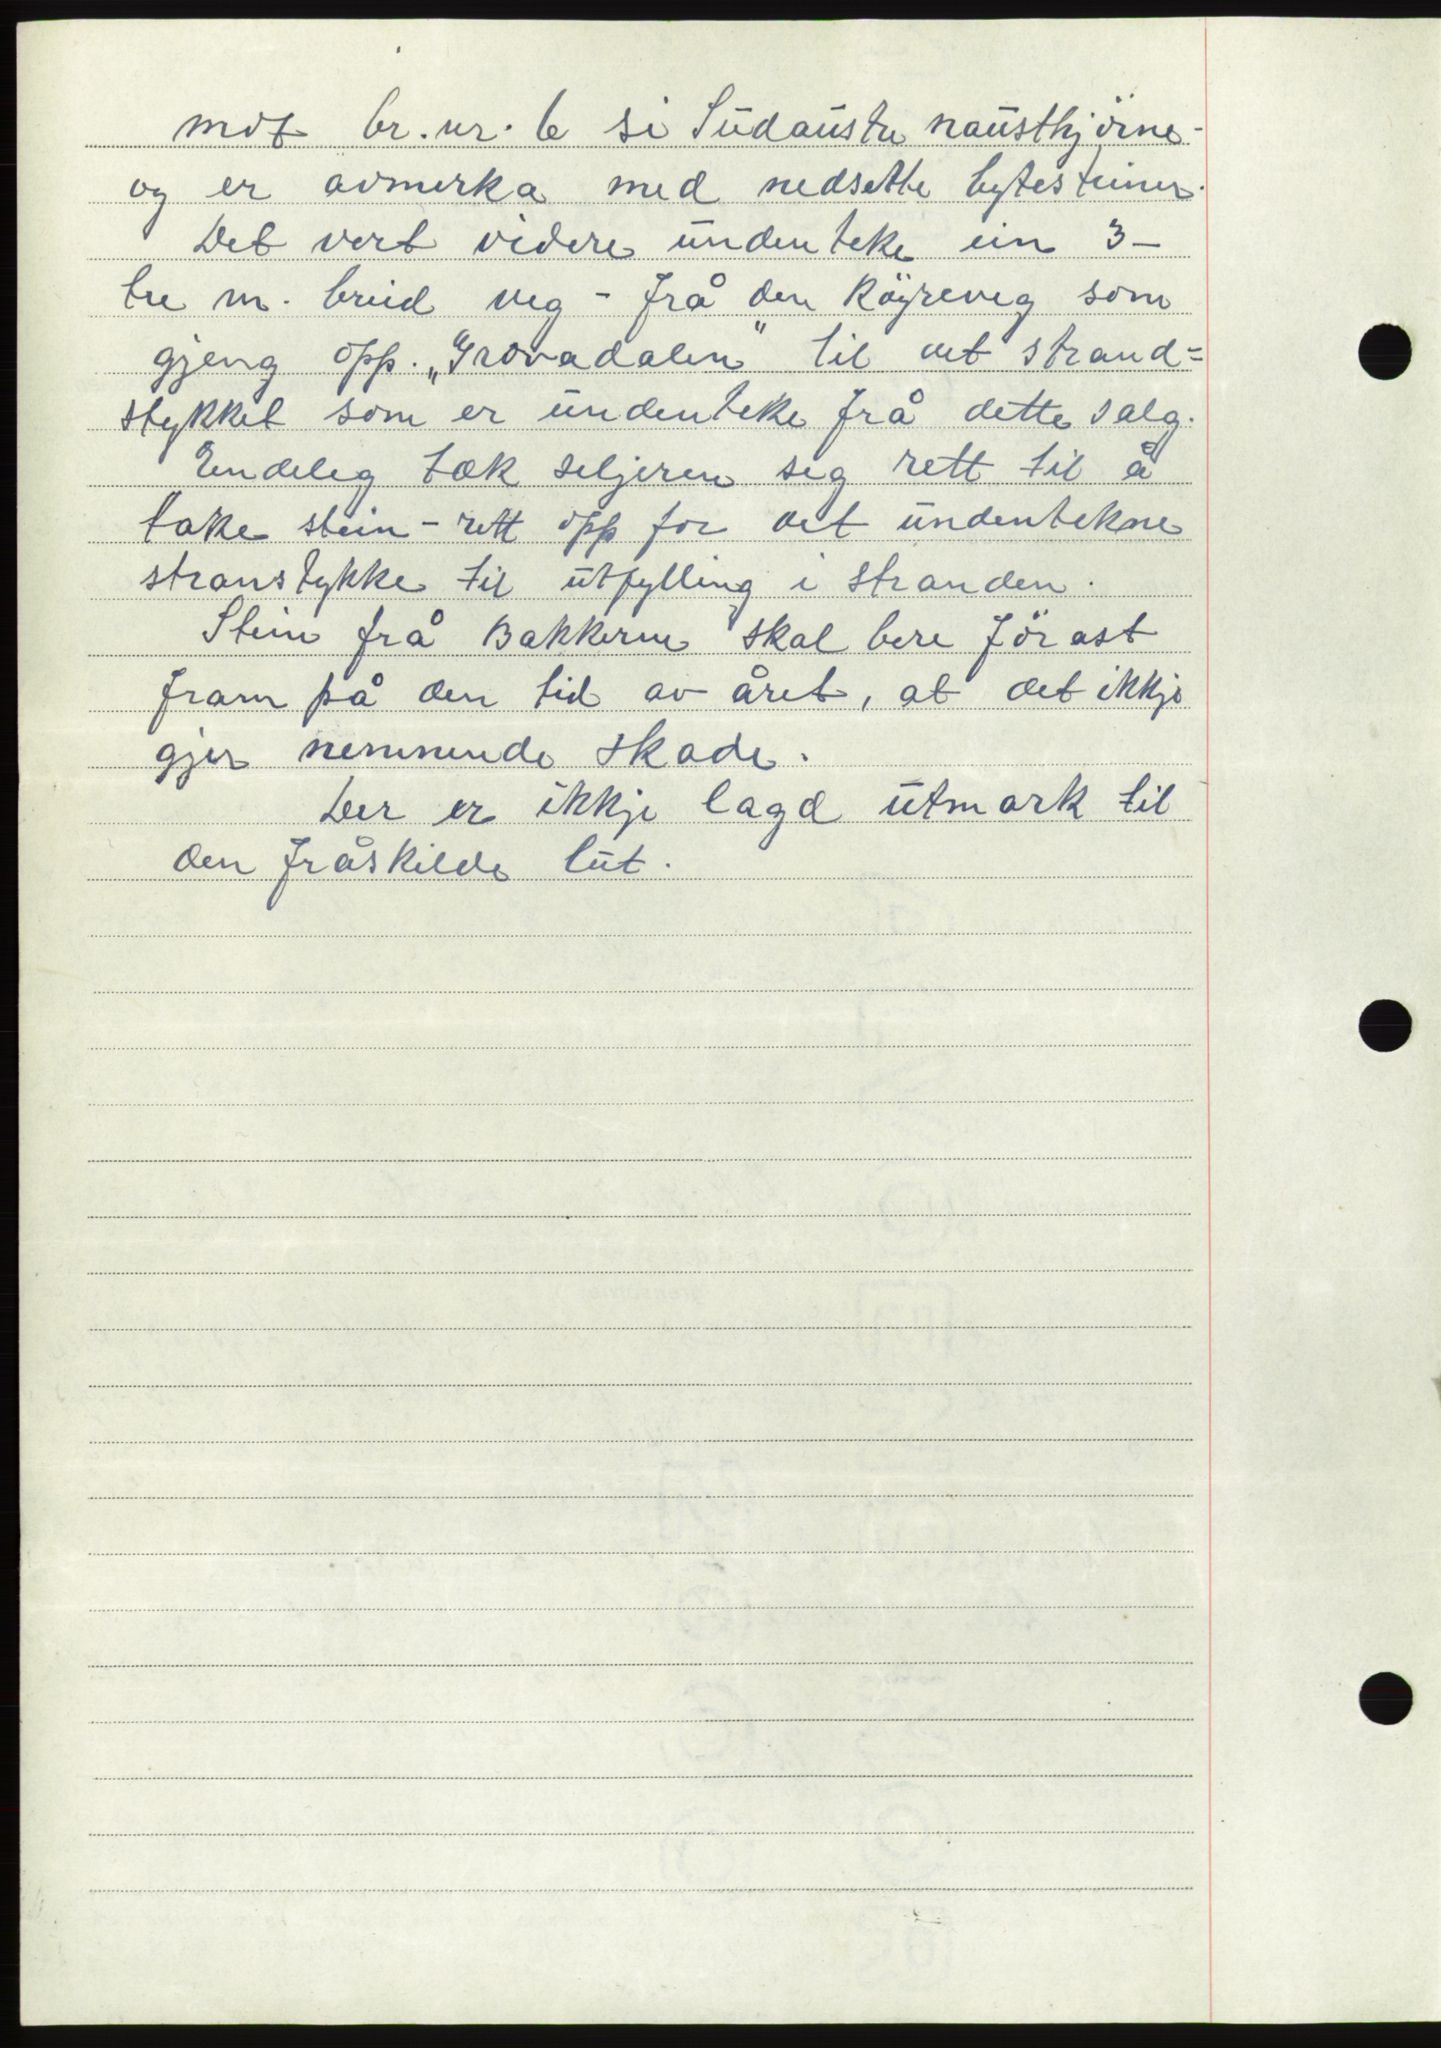 mot br. nr. 6 si Sudaustre nausthjörne -
og er avmerka med nedsette bytesteiner.
Det vert videre undenteke ein 3 -
tre m. breid veg - frå den Köyreveg som
gjeng opp. „Grovadalen" til det strand=
stykket som er undenteke frå dette salg.
Endeleg tæk seljeren seg rett til å
take stein - rett opp for det undentekne
stranstykke til utfylling i stranden.
Stein frå Bakkerne skal bere förast
fram på den tid av året, at det ikkje
gjer nemnende skade.
Der er ikkje lagd utmark til
den fråskilde lut.